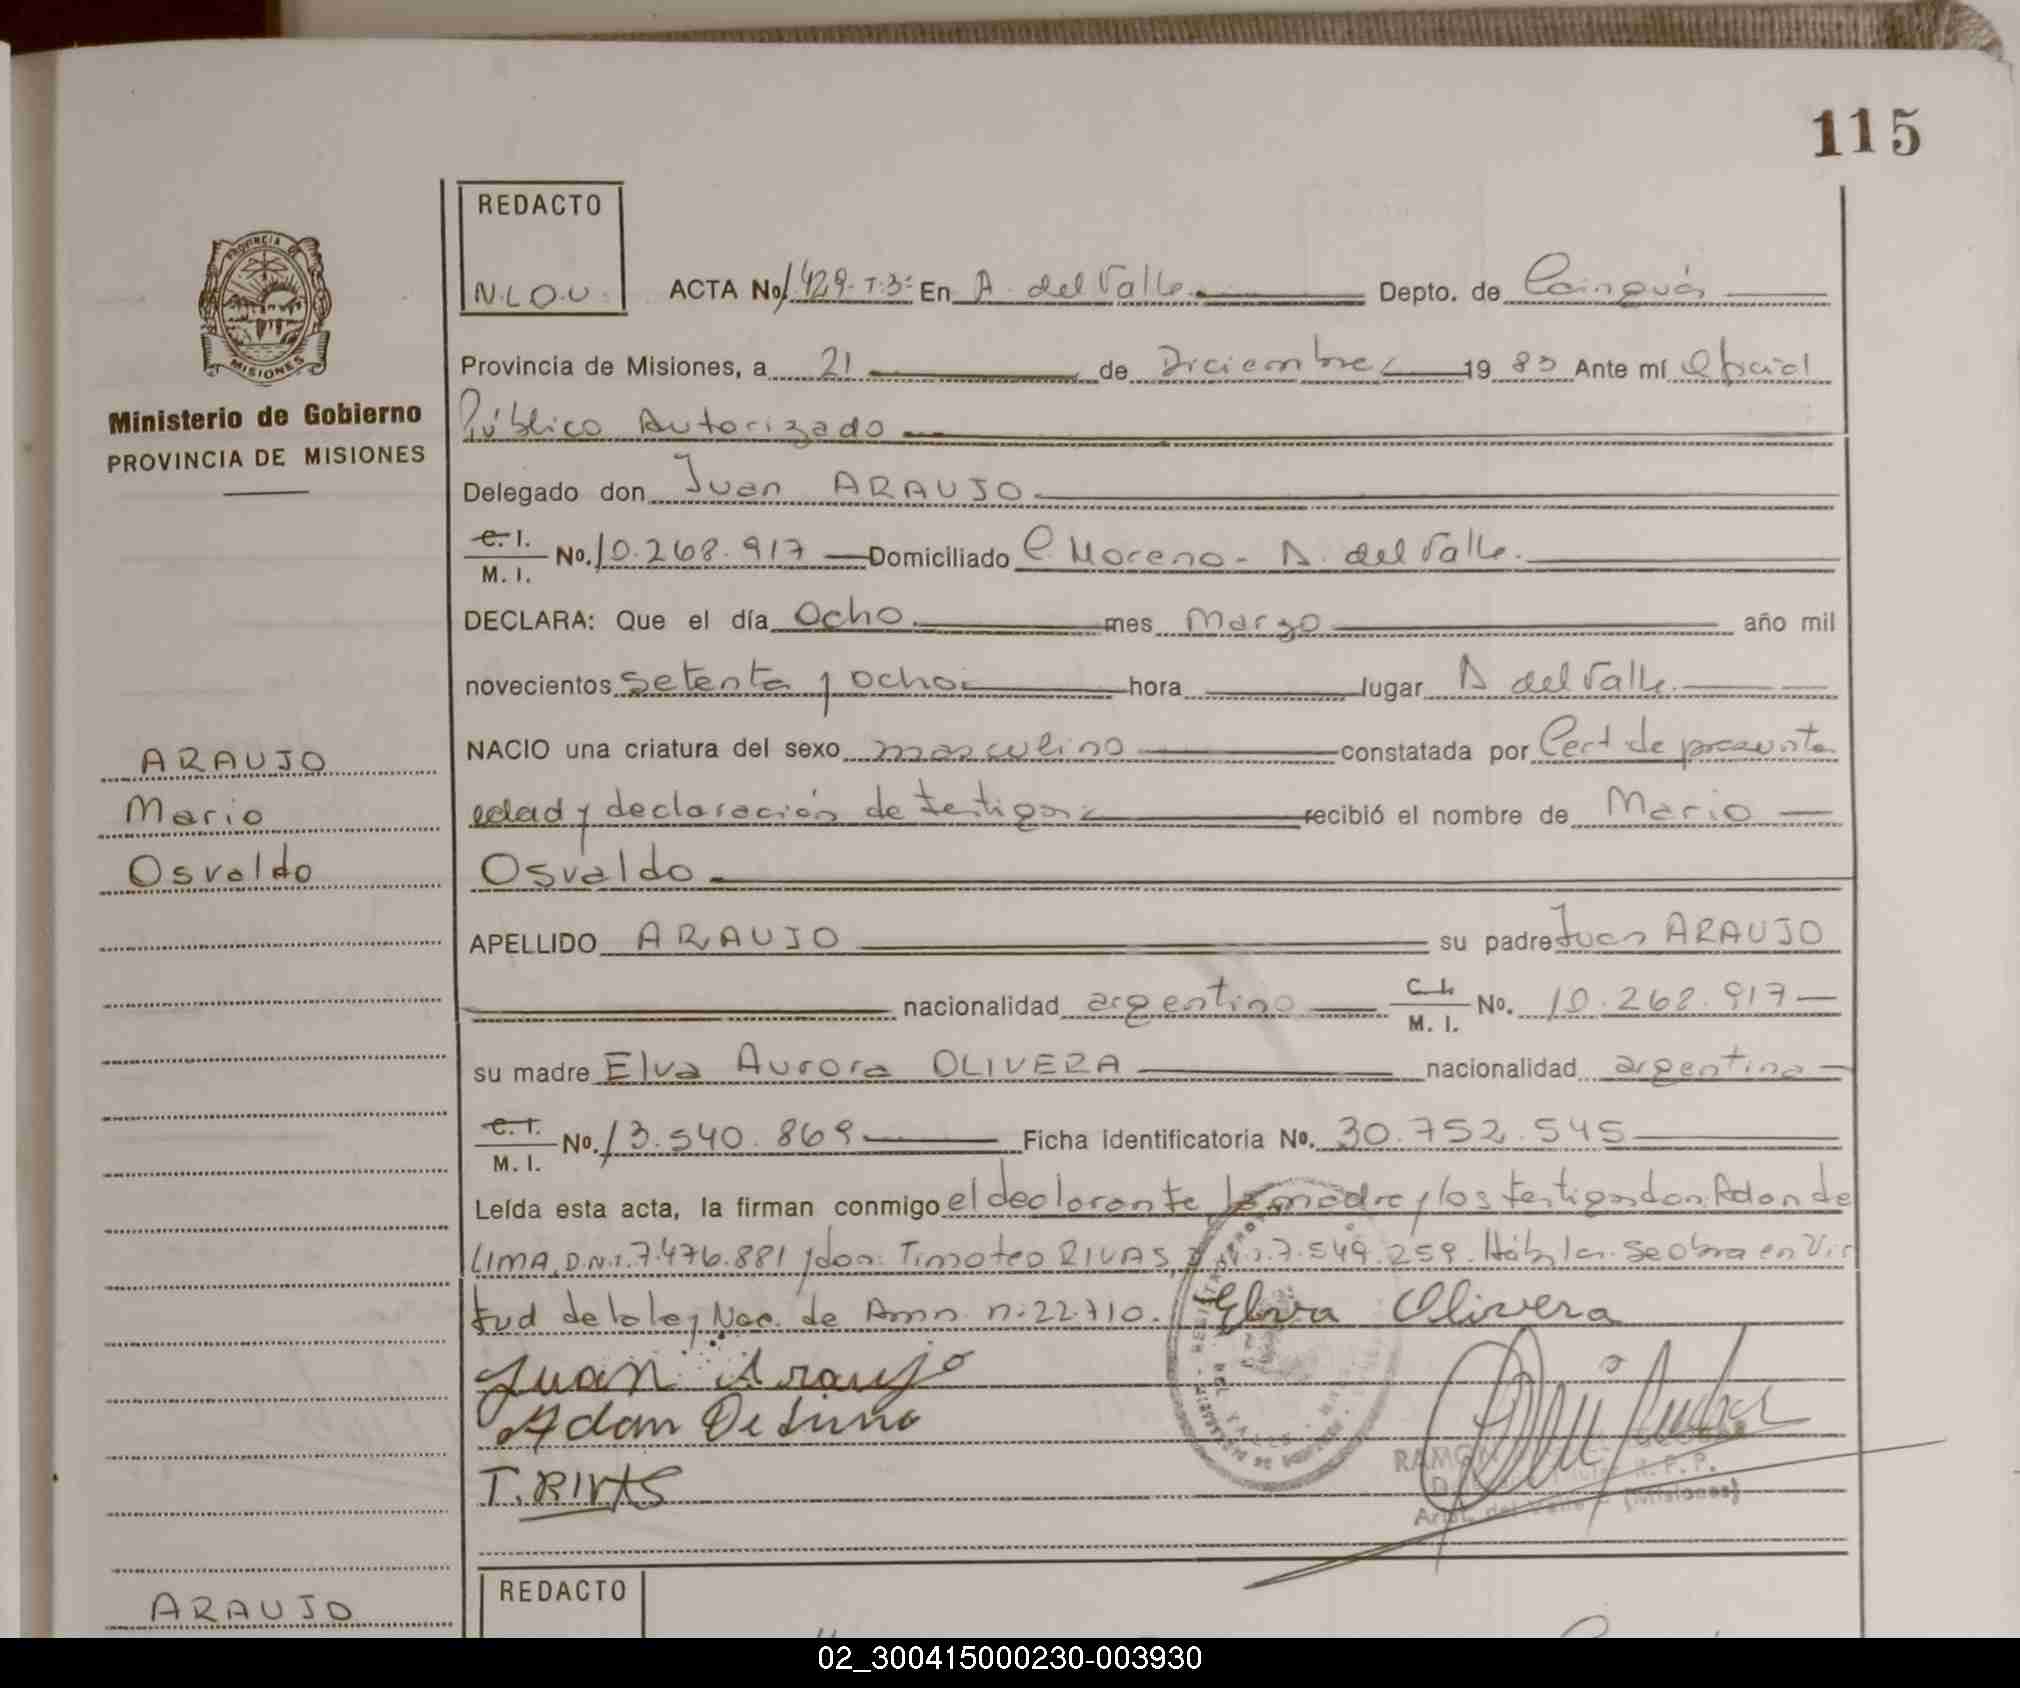 115
REDACTO
N.L.O.U.
PROVINCIA DE
MISIONES
Ministerio de Gobierno
PROVINCIA DE MISIONES
ACTA No. 1429-T.3º En A. del Valle Depto. de Cainguás
Provincia de Misiones, a 21 de Diciembre 19 83 Ante mí Oficial
Público Autorizado
Delegado don Juan ARAUJO
C. I. / M. I. No. 10.268.917 Domiciliado C. Moreno - A. del Valle.
DECLARA: Que el día Ocho mes Marzo año mil
novecientos setenta y ocho hora lugar A del Valle.
NACIO una criatura del sexo masculino constatada por Cert de presunta
edad y declaración de testigos recibió el nombre de Mario
Osvaldo
APELLIDO ARAUJO su padre Juan ARAUJO
nacionalidad argentino C. I. / M. I. No. 10.268.917
su madre Elva Aurora OLIVERA nacionalidad argentina
C. I. / M. I. No. 13.540.869 Ficha identificatoria No. 30.752.545
Leída esta acta, la firman conmigo el declarante, la madre y los testigos don: Adan de
LIMA, D.N.I. 7.476.881 y don: Timoteo RIVAS, D.N.I. 7.549.259. Hábiles. Se obra en Vir
tud de la ley Nac. de Amn. n: 22.710. Elva Olivera
Juan Araujo
Adan De Lima
T. RIVAS
RAMON
Arist. del Valle - (Misiones)
ARAUJO
Mario
Osvaldo
REDACTO
ARAUJO
02_300415000230-003930